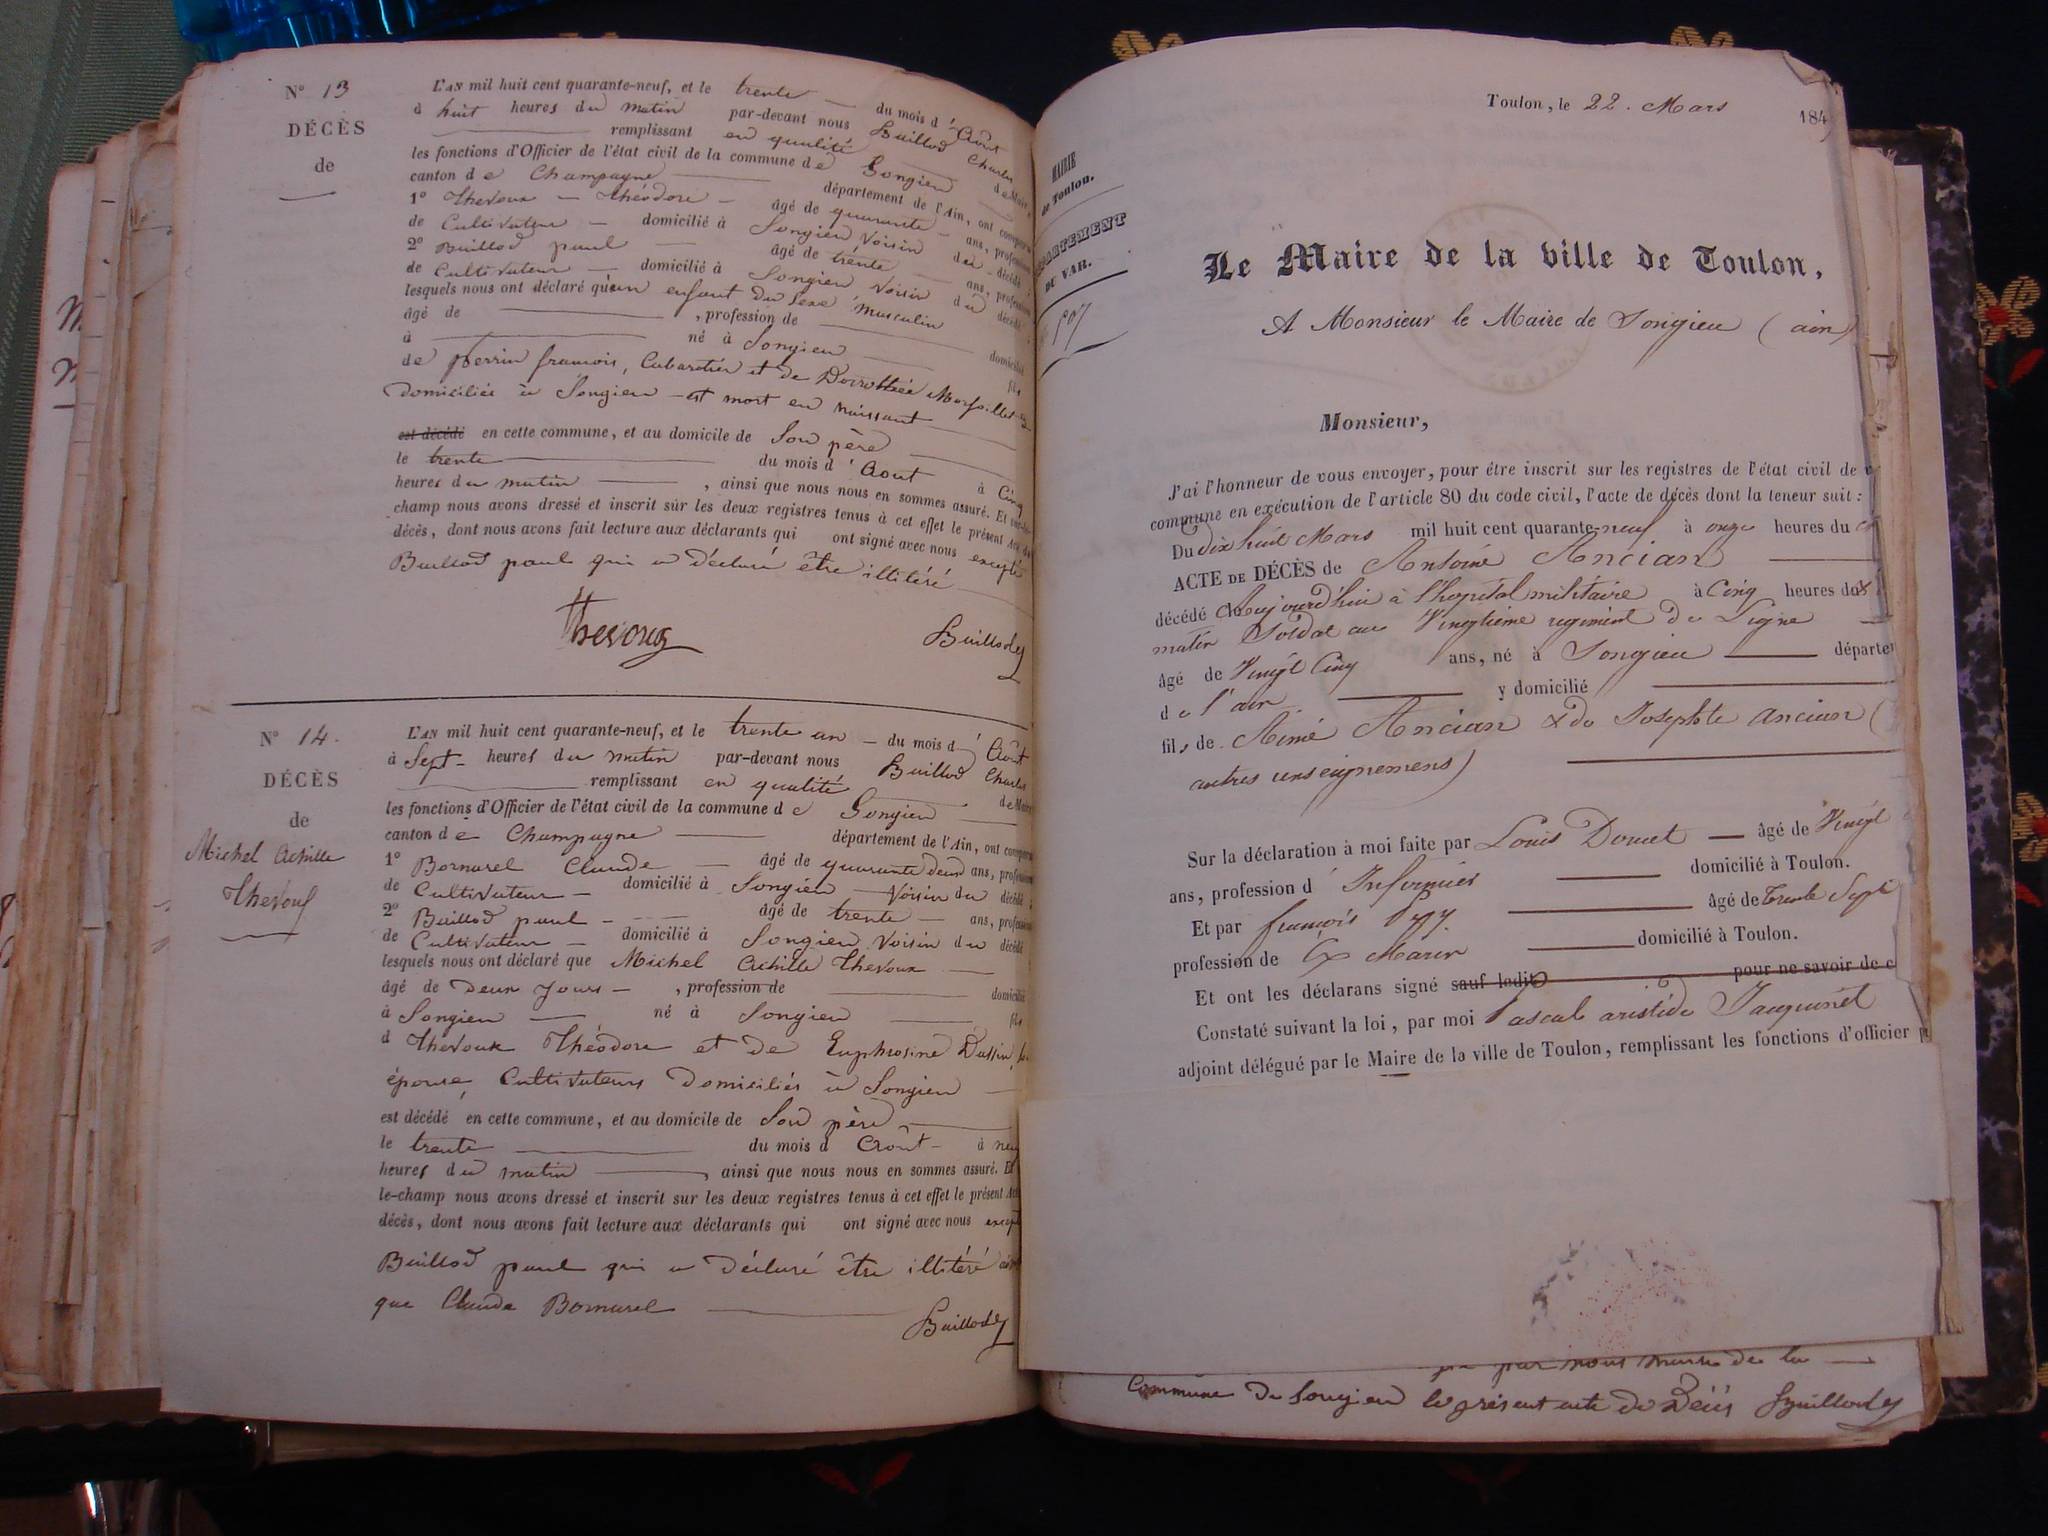 Nº 13
DÉCÈS
de
L'AN mil huit cent quarante-neuf, et le trente du mois d'Août
à huit heures du matin par-devant nous Baillod Charles
remplissant en qualité de Maire
les fonctions d'Officier de l'état civil de la commune de Songieu
canton de Champagne département de l'Ain, ont comparu
1º Thevoux Théodore âgé de quarante ans, profession
de Cultivateur domicilié à Songieu Voisin du décédé ;
2º Baillod paul âgé de trente ans, profession
de Cultivateur domicilié à Songieu Voisin du décédé
lesquels nous ont déclaré qu'un enfant du Sexe masculin
âgé de , profession de domicilié
à né à Songieu fils
de perrin françois, Cabaretier et de Dorothée
Domiciliés à Songieu est mort en naissant
est décédé en cette commune, et au domicile de Son père
le trente du mois d'Aout à Cinq
heures du matin , ainsi que nous nous en sommes assuré. Et sur-le-
champ nous avons dressé et inscrit sur les deux registres tenus à cet effet le présent Acte de
décès, dont nous avons fait lecture aux déclarants qui ont signé avec nous excepté
Baillod paul qui a déclaré être illitéré
Thevoux
Baillod
Nº 14.
DÉCÈS
de
Michel Achille
Thevoux
L'AN mil huit cent quarante-neuf, et le trente un du mois d'Août
à Sept heures du matin par-devant nous Baillod Charles
remplissant en qualité de Maire
les fonctions d'Officier de l'état civil de la commune de Songieu
canton de Champagne département de l'Ain, ont comparu
1º Bornarel Claude âgé de quarante deux ans, profession
de Cultivateur domicilié à Songieu Voisin du décédé ;
2º Baillod paul âgé de trente ans, profession
de Cultivateur domicilié à Songieu Voisin du décédé
lesquels nous ont déclaré que Michel Achille Thevoux
âgé de Deux Jours , profession de domicilié
à Songieu né à Songieu fils
d Thevoux Théodore et de Euphrosine Dussin
épouse, Cultivateurs Domiciliés à Songieu
est décédé en cette commune, et au domicile de Son père
le trente du mois d Août à neuf
heures du matin , ainsi que nous nous en sommes assuré. Et
le-champ nous avons dressé et inscrit sur les deux registres tenus à cet effet le présent Acte
décès, dont nous avons fait lecture aux déclarants qui ont signé avec nous excepté
Baillod paul qui a déclaré être illitéré
que Claude Bornarel
Baillod
Toulon, le 22. Mars 184
MAIRIE
de Toulon.
DÉPARTEMENT
DU VAR.
Le Maire de la ville de Toulon,
A Monsieur le Maire de Songieu (ain)
Monsieur,
J'ai l'honneur de vous envoyer, pour être inscrit sur les registres de l'état civil de
commune en exécution de l'article 80 du code civil, l'acte de décès dont la teneur suit :
Du dix huit Mars mil huit cent quarante-neuf à onze heures du
ACTE DE DÉCÈS de Antoine Ancian
décédé aujourd'hui à l'hopital militaire à Cinq heures du
matin Soldat au Vingtième regiment de Ligne
âgé de Vingt Cinq ans, né à Songieu départe
de l'ain y domicilié
fils de Aimé Ancian & de Josephte Ancian (
autres renseignemens)
Sur la déclaration à moi faite par Louis Doucet âgé de Vingt
ans, profession d'Infirmier domicilié à Toulon.
Et par françois âgé de Trente Sept
profession de Ex Marin domicilié à Toulon.
Et ont les déclarans signé sauf ledit pour ne savoir de c
Constaté suivant la loi, par moi Pascal aristide Jauquinet
adjoint délégué par le Maire de la ville de Toulon, remplissant les fonctions d'officier
par nous maire de la
Commune de Songieu le présent acte de Décès Baillod